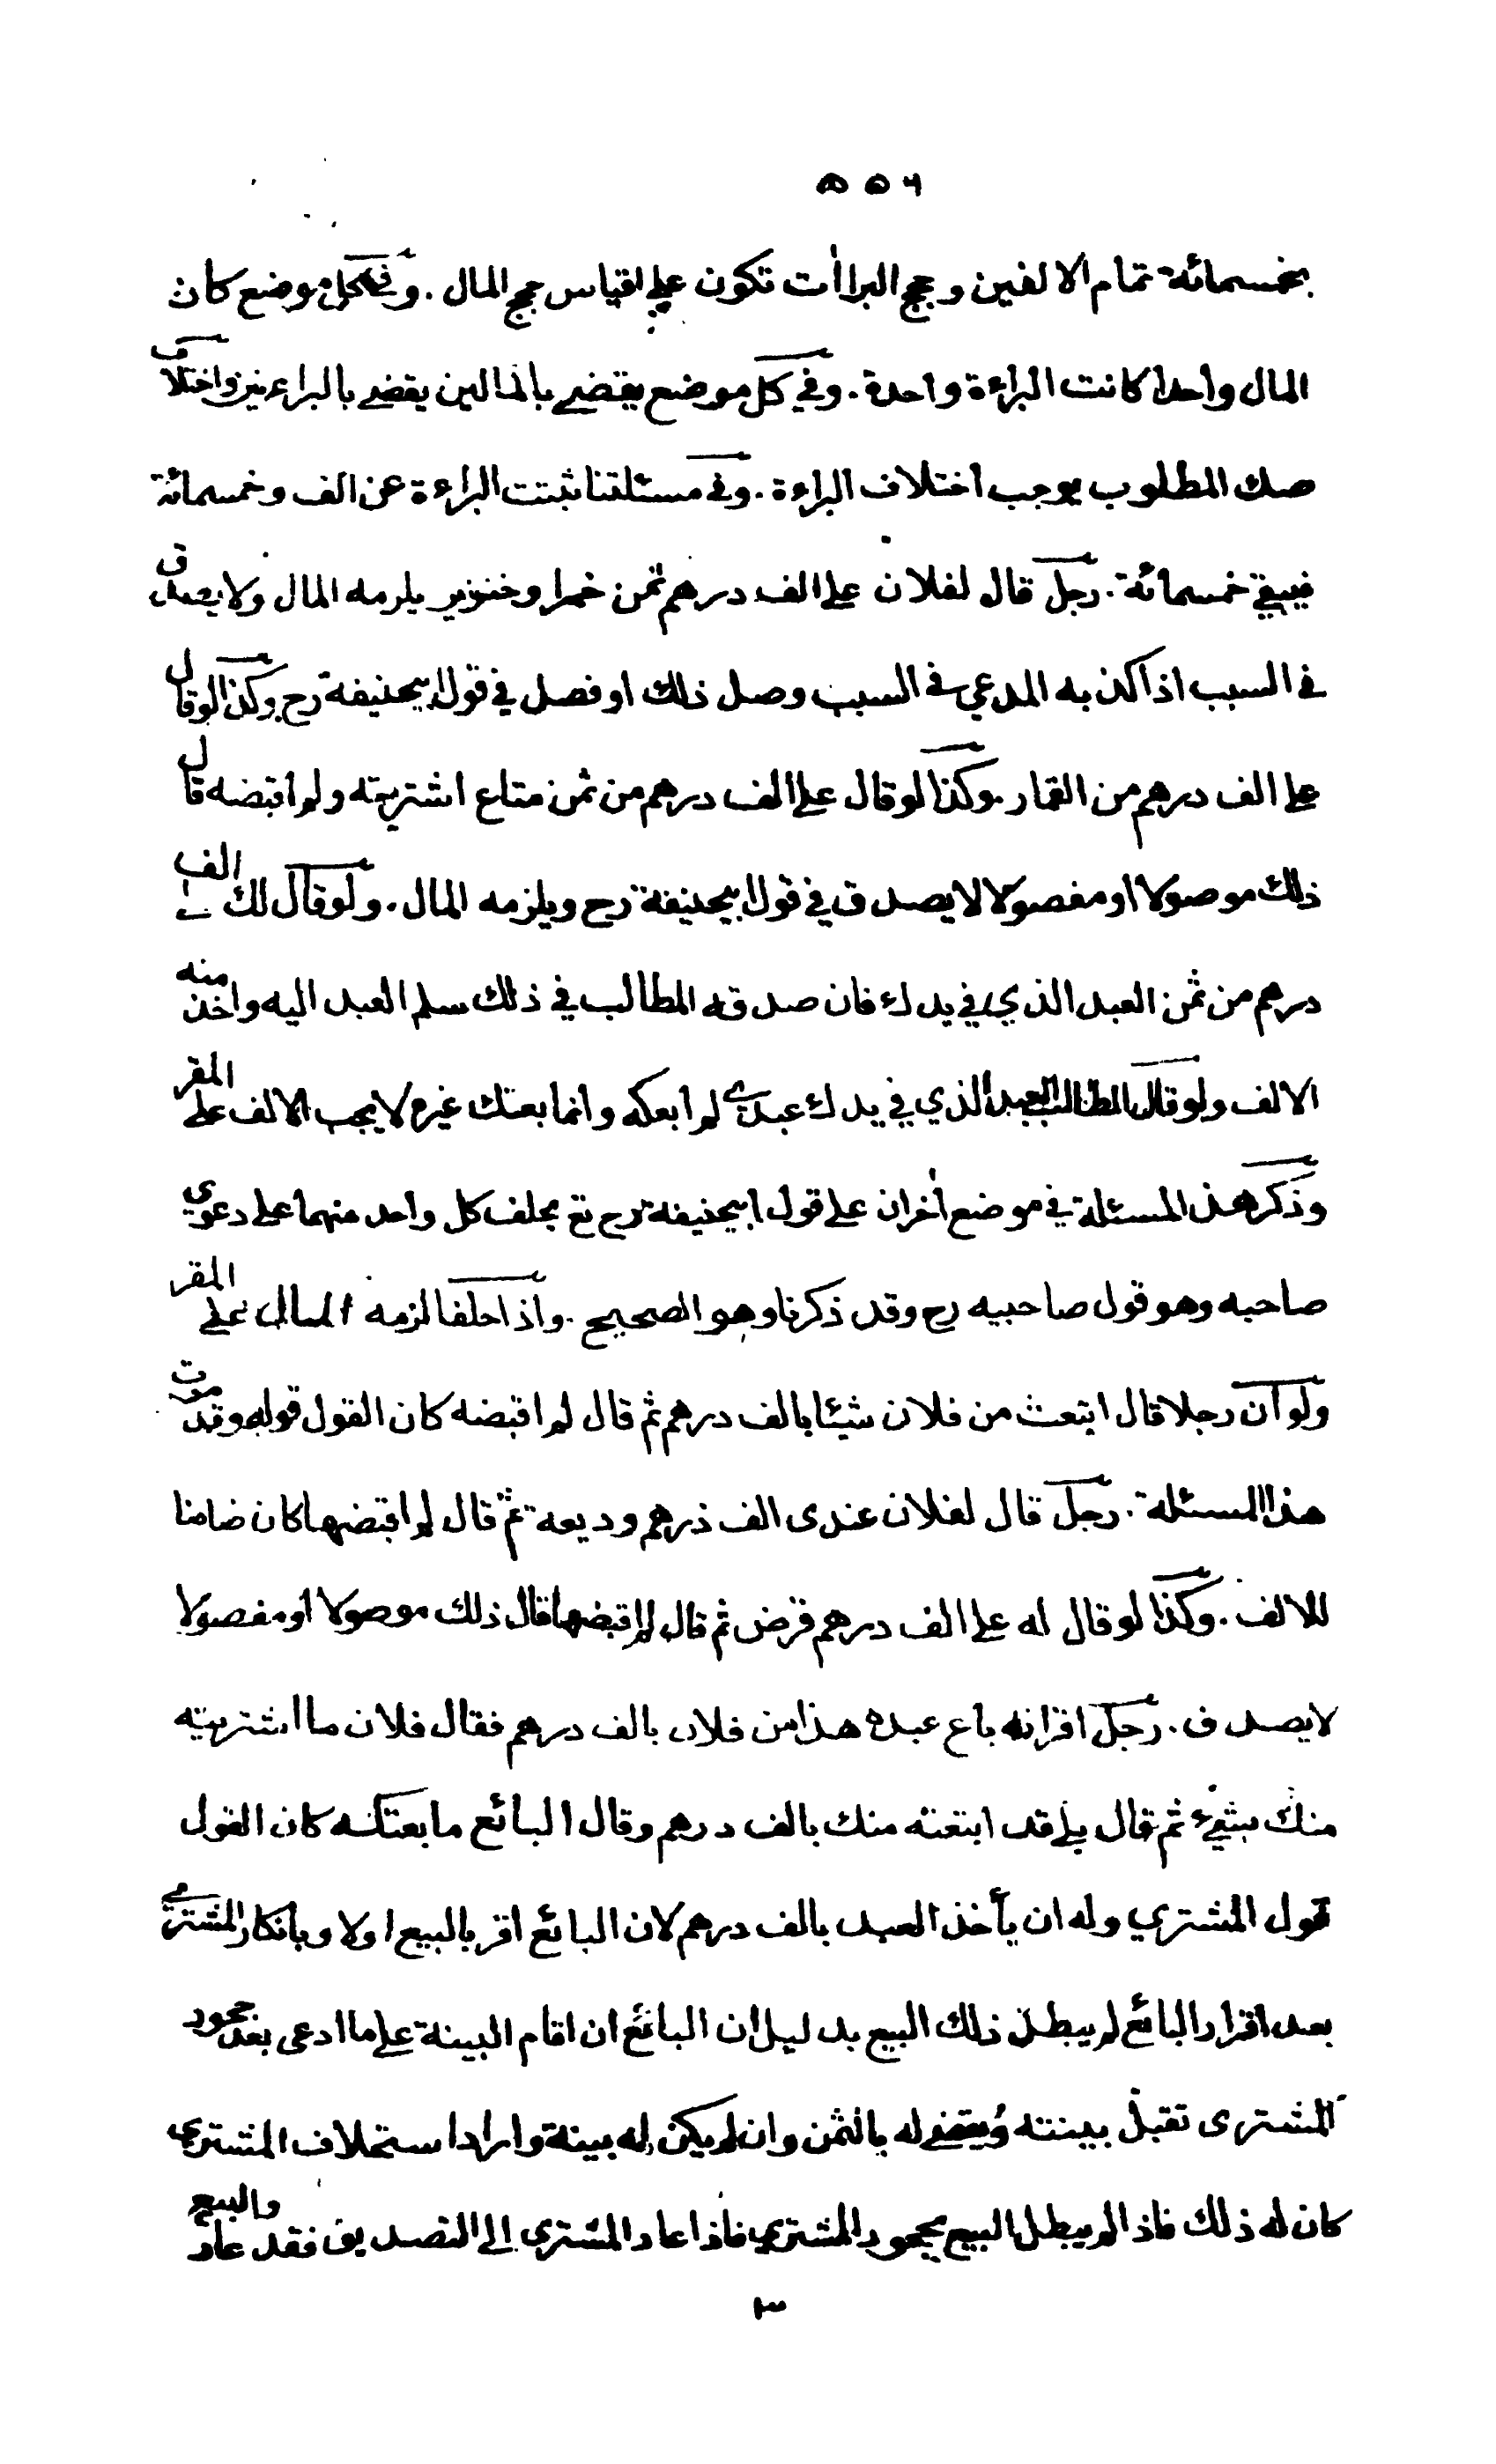 ٥٥٦
بخمسمائة تمام الالفين وحجج البراات تكون على قياس حجج المال . وفي كل موضع كان
المال واحدا كانت البراءة واحدة . وفي كل موضع يقضي بالمالين يقضي بالبراءتين واختلاف
صك المطلوب يوجب اختلاف البراءة . وفي مسئلتنا ثبتت البراءة عن الف وخمسمائة
فيبقي خمسمائة . رجل قال لفلان علي الف درهم ثمن خمر او خنزير يلزمه المال ولا يصدق
في السبب اذا كذبه المدعي في السبب وصل ذلك او فصل في قول ابيحنيفة رح وكذا لو قال
علي الف درهم من القمار . وكذا لو قال علي الف درهم من ثمن متاع اشتريته ولم اقبضه قال
ذلك موصولا او مفصولا لا يصدق في قول ابيحنيفة رح ويلزمه المال . ولو قال لك الف
درهم من ثمن العبد الذي في يدك فان صدقه المطالب في ذلك سلم العبد اليه واخذ منه
الالف ولو قال المطالب العبد الذي في يدك عبدي لم ابعكه وانما بعتك غيره لا يجب الالف على المقر
وذكر هذه المسئلة في موضع اخر ان على قول ابيحنيفة رح تع يحلف كل واحد منهما على دعوي
صاحبه وهو قول صاحبيه رح وقد ذكرنا وهو الصحيح . واذا حلفا لزمه المال على المقر
ولو ان رجلا قال ابتعت من فلان شيئا بالف درهم ثم قال لم اقبضه كان القول قوله وقد مرت
هذا المسئلة . رجل قال لفلان عندى الف درهم وديعة ثم قال لم اقبضها كان ضامنا
للالف . وكذا لو قال له علي الف درهم قرض ثم قال لم اقبضها قال ذلك موصولا او مفصولا
لا يصدق . رجل اقر انه باع عبده هذا من فلان بالف درهم فقال فلان ما اشتريته
منك بشيء ثم قال بلى قد ابتعته منك بالف درهم وقال البائع ما بعتكه كان القول
قول المشتري وله ان يأخذ العبد بالف درهم لان البائع اقر بالبيع اولا وبانكار المشتري
بعد اقرار البائع لم يبطل ذلك البيع بدليل ان البائع ان اقام البينة على ما ادعى بعد جحود
المشترى تقبل بينته ويقضى له بالثمن وان لم يكن له بينة واراد استحلاف المشتري
كان له ذلك فاذا لم يبطل البيع بجحود المشتري فاذا عاد المشتري الى التصديق فقد عاد والبيع